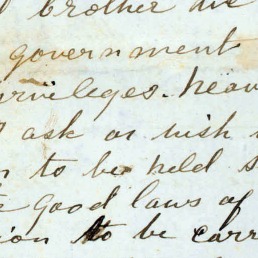 brother
government
privileges. heav
I ask or wish
to be held s
good laws of
tion to be carr